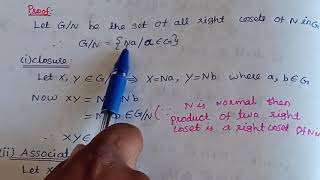 Proof:
Let G/N be the set of all right cosets of N in G
∴ G/N = {Na/a∈G}
(i) closure:
Let X, Y ∈ G/N ⇒ X=Na, Y=Nb where a, b∈G
Now XY = N
= N b ∈ G/N (∵ N is normal then
product of two right
coset is a right coset of N in
∴ XY ∈
(ii) Associat
Let X